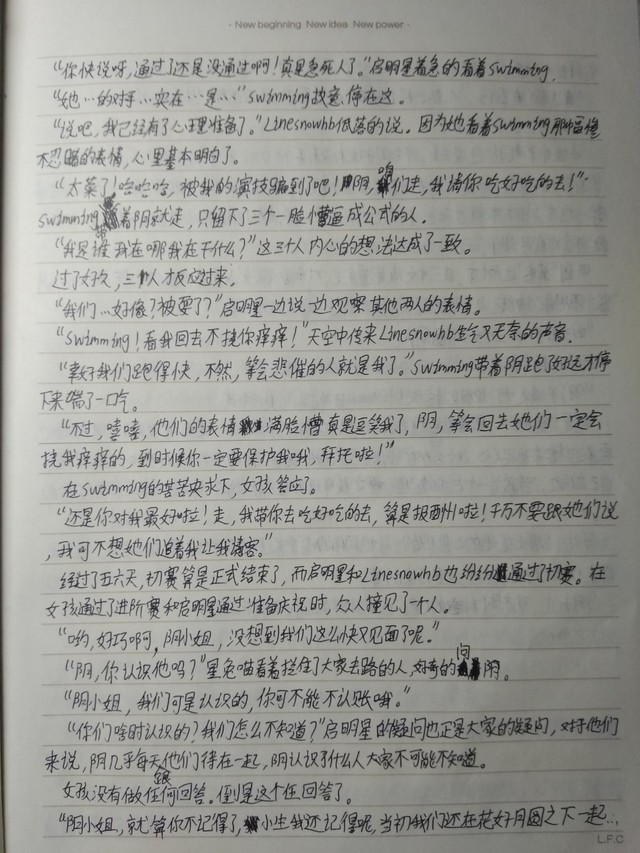 · New beginning New idea New power ·
“你快说呀,通过了还是没通过啊!真是急死人了。”启明星着急的看着swimming.
“她…的对手…实在…是…”swimming故意停在这。
“说吧,我已经有了心理准备了。”Linesnowhb低落的说。因为她看着swimming那
不忍睹的表情,心里基本明白了。
“太菜了!哈哈哈,被我的演技骗到了吧!阴,咱们走,我请你吃好吃的去!”
swimming带着阴就走,只留下了三个一脸懵逼成公式的人。
“我是谁我在哪我在干什么?”这三个人内心的想法达成了一致。
过了好久,三个人才反应过来。
“我们…好像?被耍了?”启明星一边说一边观察其他两人的表情。
“swimming!看我回去不挠你痒痒!”天空中传来Linesnowhb生气又无奈的声音.
“幸好我们跑得快,不然,等会悲催的人就是我了。”swimming带着阴跑了好远才停
下来喘了一口气。
“不过,嘻嘻,他们的表情满脸懵真是逗笑我了,阴,等会回去她们一定会
挠我痒痒的,到时候你一定要保护我哦,拜托啦!”
在swimming的苦苦央求下,女孩答应了。
“还是你对我最好啦!走,我带你去吃好吃的去,算是报酬啦!千万不要跟她们说
,我可不想她们追着我让我请客。”
经过了五六天,初赛算是正式结束了,而启明星和Linesnowhb也纷纷通过了初赛。在
女孩通过了进阶赛和启明星通过准备庆祝时,众人撞见了一个人。
“哟,好巧啊,阴小姐,没想到我们这么快又见面了呢。”
“阴,你认识他吗?”星兔喵看着拦住了大家去路的人,好奇的问阴。
“阴小姐,我们可是认识的,你可不能不认账哦。”
“你们啥时认识的?我们怎么不知道?”启明星的疑问也正是大家的疑问,对于他们
来说,阴几乎每天跟他们待在一起,阴认识了什么人大家不可能不知道。
女孩没有做任何回答。倒是这个人回答了。
“阴小姐,就算你不记得了,小生我还记得呢,当初我们还在花好月圆之下一起…
L.F.C